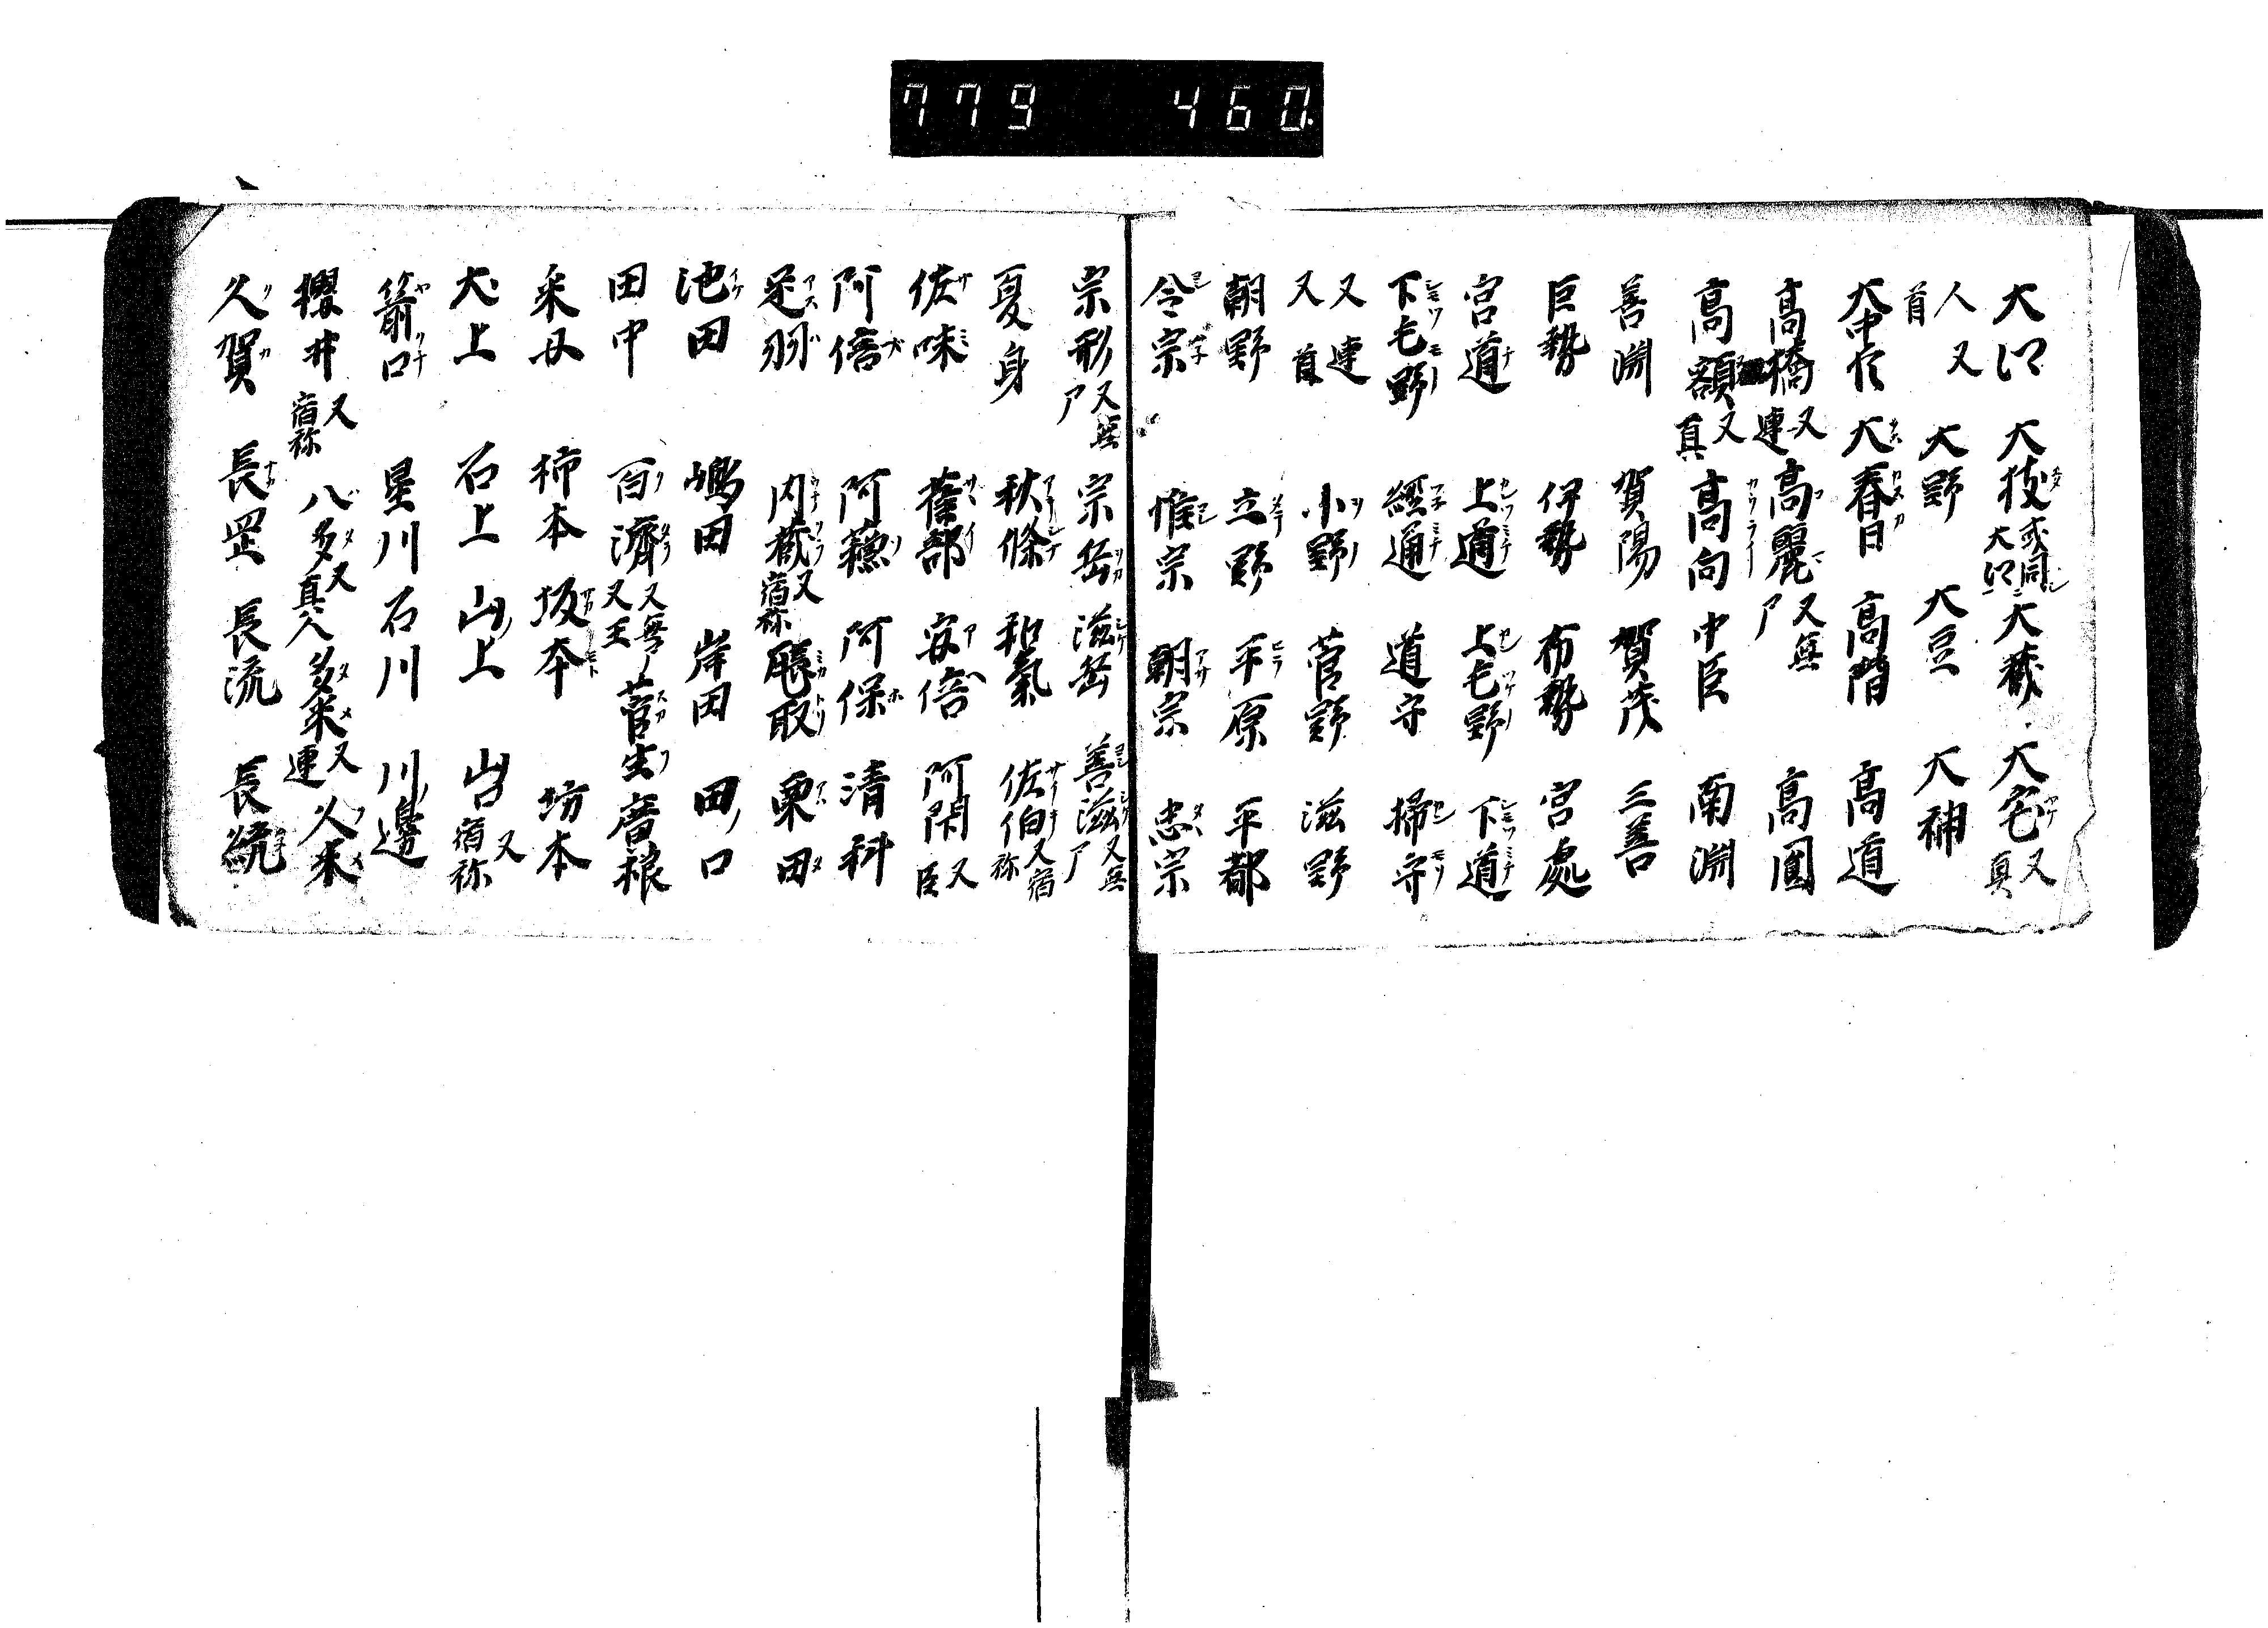 779 460
大江 大枝 或同大江 大蔵 大宅 又真
人 又首 大野 大豆 大神
大中臣 大春日 高階 高道
高橋 又連 高麗 又無尸 高圓
高額 又真 高向 中臣 南淵
善淵 賀陽 賀茂 三善
巨勢 伊勢 布勢 宮處
宮道 上道 上毛野 下道
下毛野 經通 道守 掃守
又連 又首 小野 菅野 滋野
朝野 立野 平原 平都
令宗 惟宗 朝宗 忠宗
宗形 又無尸 宗岳 滋岳 善滋 又無尸
夏身 秋條 和氣 佐伯 又宿祢
佐味 雀部 安倍 阿閇 又臣
阿倍 阿蘓 阿保 清科
足羽 内蔵 又宿祢 取 粟田
池田 嶋田 岸田 田口
田中 百濟 又無尸 又王 菅生 廣根
采女 柿本 坂本 坊本
犬上 石上 山上 山口 又宿祢
箭口 星川 石川 川邊
櫻井 又宿祢 八多 又真人 多米 又連 久米
久賀 長岡 長流 長統